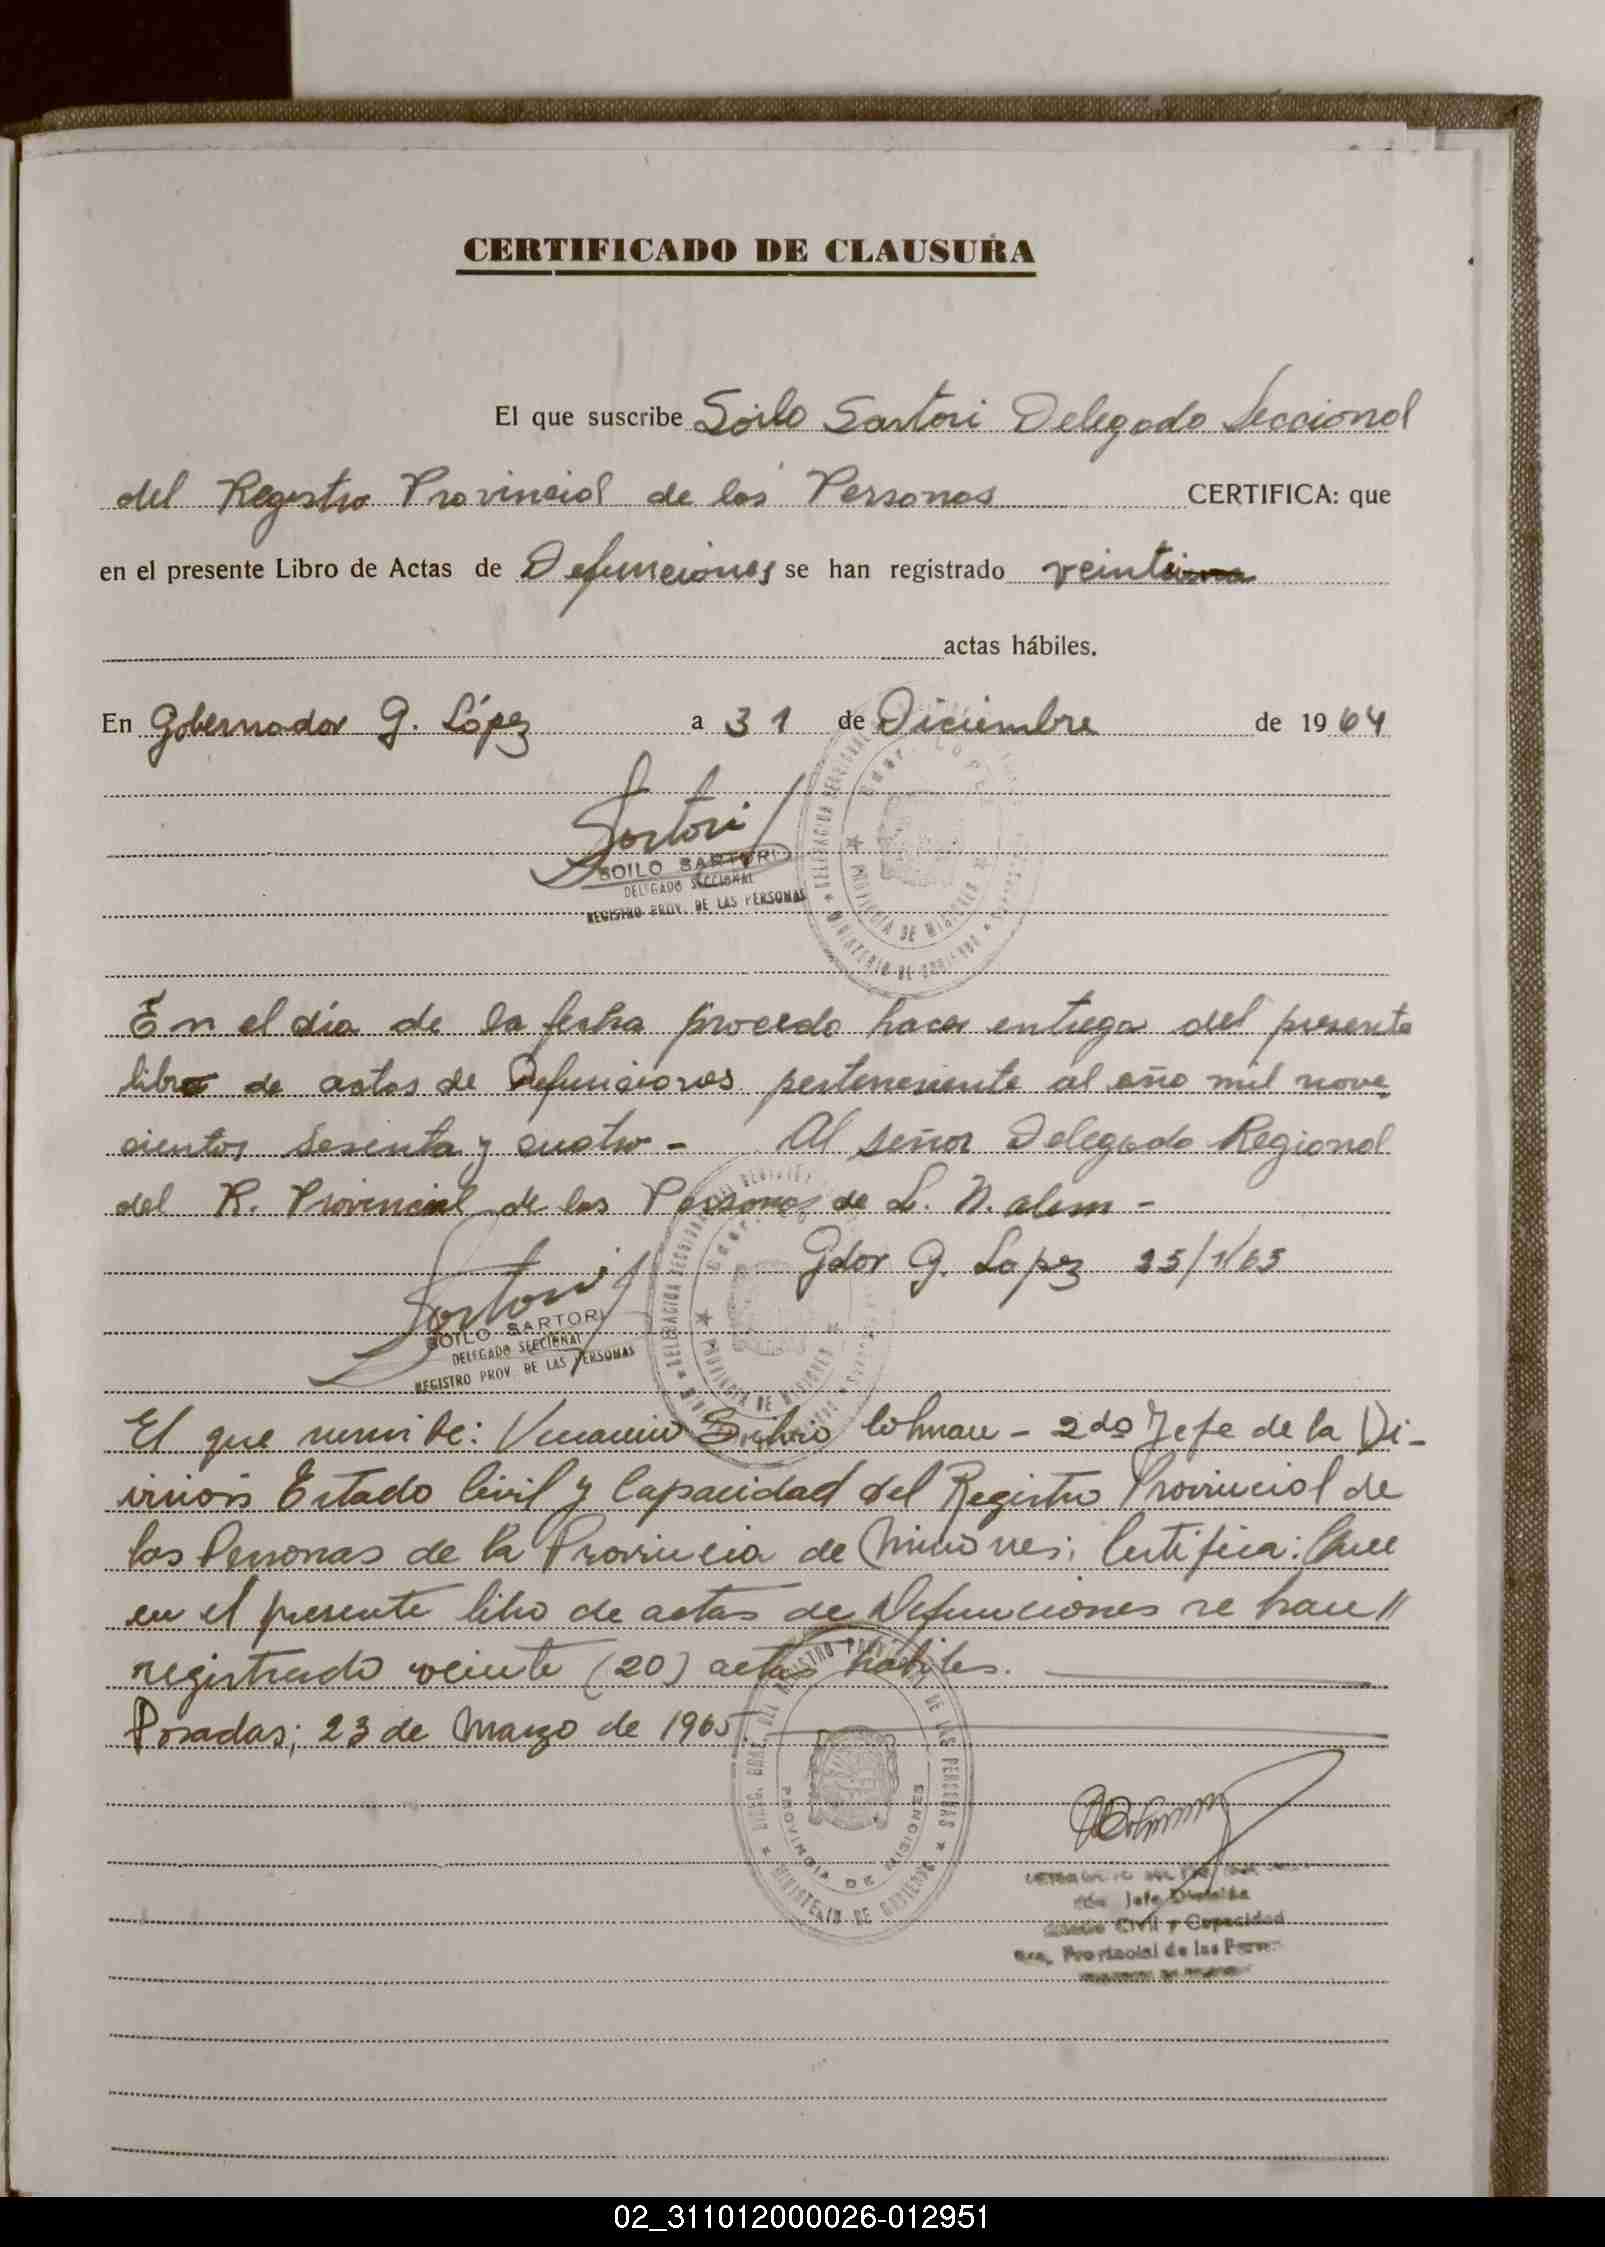 CERTIFICADO DE CLAUSURA
El que suscribe Soilo Sartori Delegado Seccional
del Registro Provincial de las Personas CERTIFICA: que
en el presente Libro de Actas de Defunciones se han registrado
actas hábiles.
En Gobernador G. López a 31 de Diciembre de 1964
Sartori
SOILO SARTORI
DELEGADO SECCIONAL
REGISTRO PROV. DE LAS PERSONAS
PROVINCIA DE MISIONES
MINISTERIO DE GOBIERNO
En el día de la fecha procedo hacer entrega del presente
libro de actas de Defunciones perteneciente al año mil nove
cientos sesenta y cuatro - Al señor Delegado Regional
del R. Provincial de las Personas de L. N. alem -
Gdor G. Lopez 25/1/65
Sartori
SOILO SARTORI
DELEGADO SECCIONAL
REGISTRO PROV. DE LAS PERSONAS
PROVINCIA DE MISIONES
El que suscribe: Venancio Silvio Cohman - 2do Jefe de la Di-
visión Estado Civil y Capacidad del Registro Provincial de
las Personas de la Provincia de Misiones; Certifica: Que
en el presente libro de actas de Defunciones se han //
registrado veinte (20) actas habiles.
Posadas; 23 de Marzo de 1965
DIREC. GRAL. DEL REGISTRO PROVINCIAL DE LAS PERSONAS
PROVINCIA DE MISIONES
MINISTERIO DE GOBIERNO
Jefe División
Estado Civil y Capacidad
Provincial de las
02_311012000026-012951